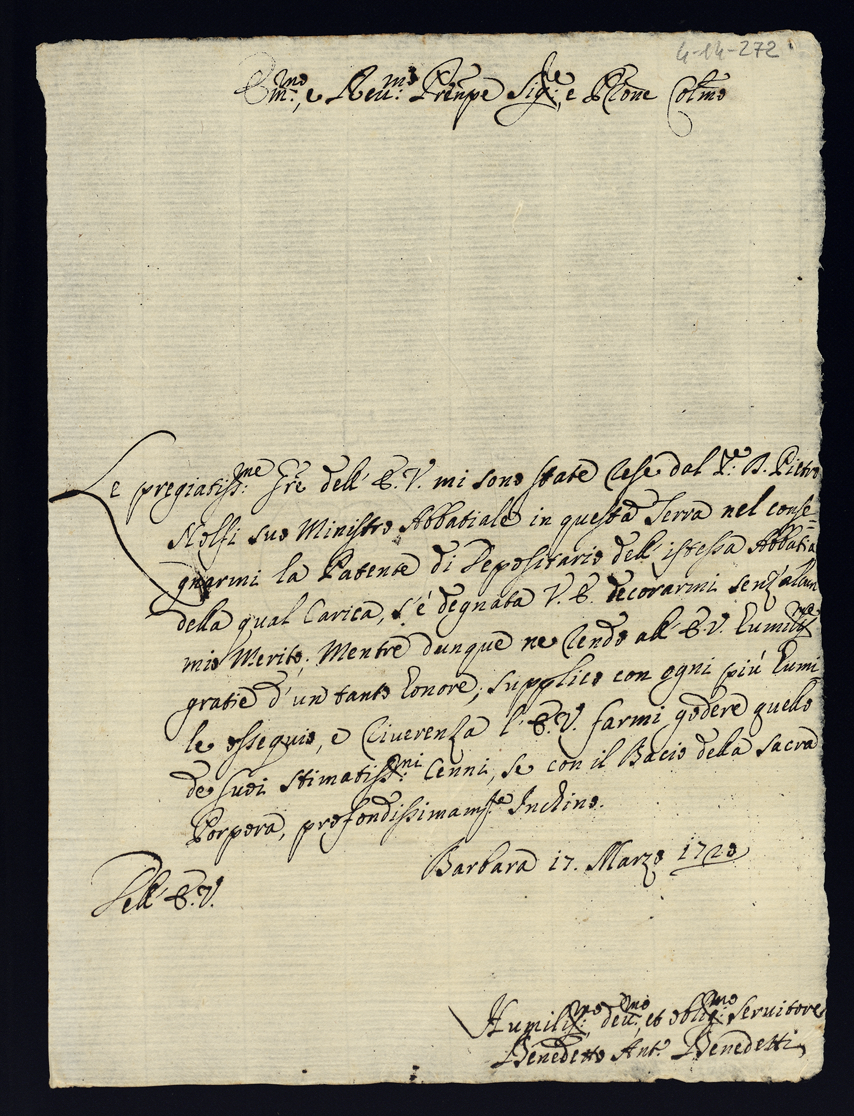 4-14-272
Em.mo, e Reu.mo Prinpe Sig.re, e Pröne Colmo
Le pregiatiss.me Lre dell' E.V. mi sono state rese dal Sr. D. Pietro
Nolfi suo Ministro Abbatiale in questa Terra nel conse=
gnarmi la Patente di Depositario dell' istessa Abbatia
della qual Carica, s'è degnata V.E. decorarmi senz' alcun
mio Merito; Mentre dunque ne rendo all' E.V. humiliss.me
gratie d'un tanto honore, supplico con ogni più humi-
le ossequio, e riverenza l' E.V. farmi godere quello
de suoi stimatiss.mi Cenni, se con il Bacio della Sacra
Porpora, profondissimam.te Inchino.
Barbara 17. Marzo 1720
Dell' E.V.
Humiliss.mo deu.mo, et oblig.mo seruitore
Benedetto Ant.o Benedetti